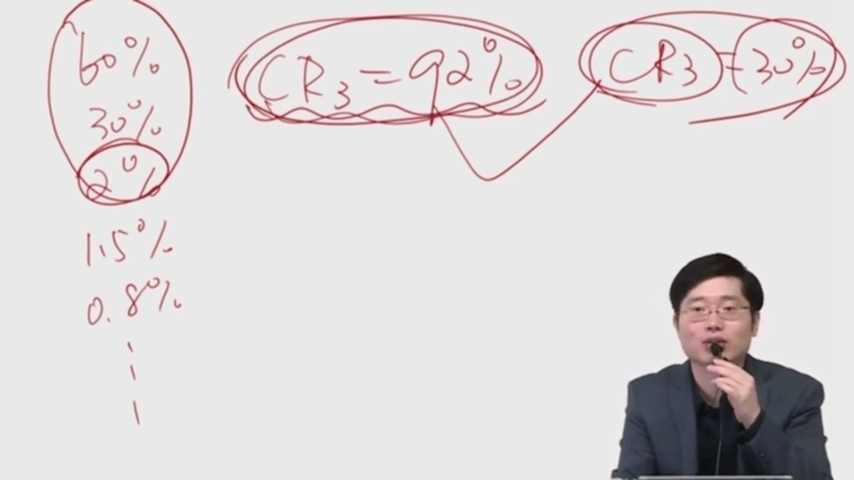 60%
30%
2%
1.5%
0.8%
CR3=92%
CR3=30%